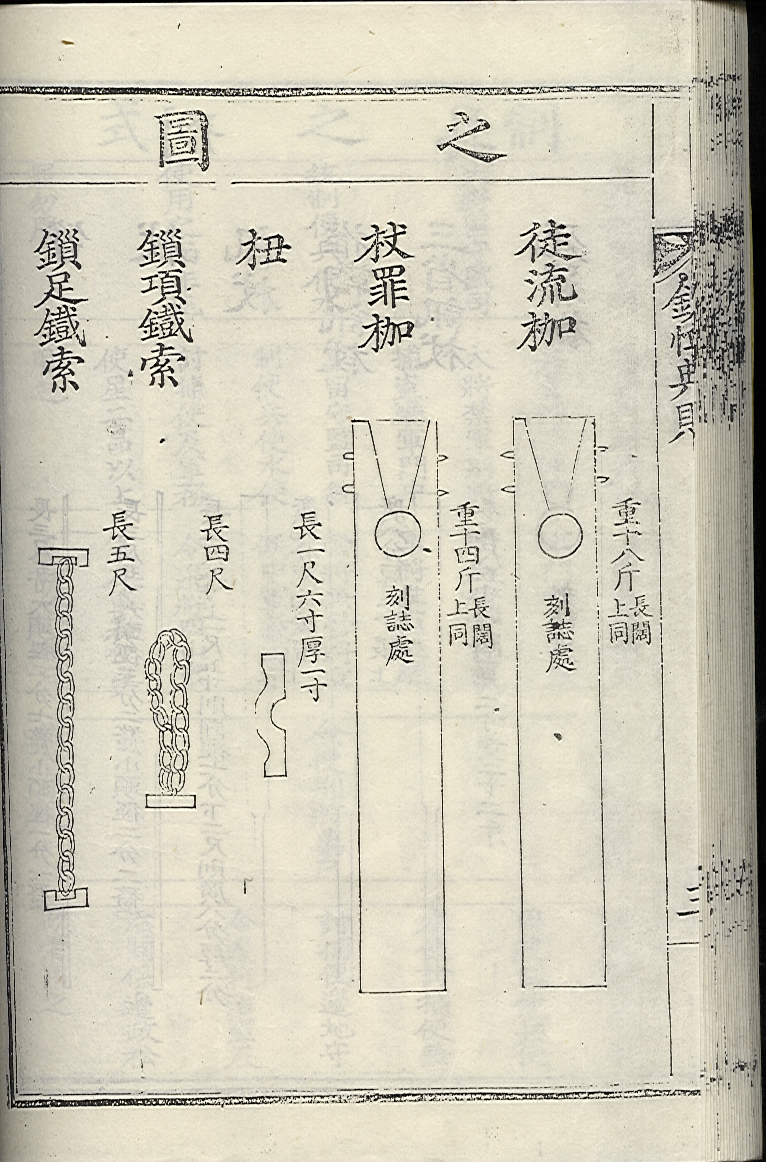 之圖
徒流枷
重十八斤
長闊
上同
刻誌處
杖罪枷
重十四斤
長闊
上同
刻誌處
杻
長一尺六寸厚一寸
鎖項鐵索
長四尺
鎖足鐵索
長五尺
三